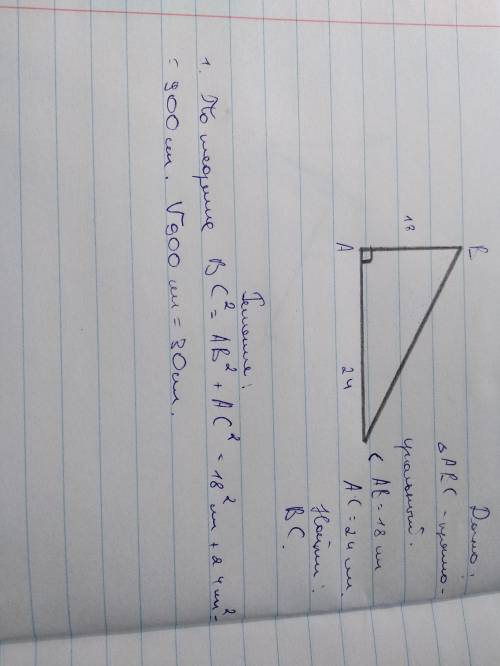 Дано:
△ABC - прямо-
угольный.
AB = 18 см
AC = 24 см.
Найти:
BC.
B
18
A
24
C
Решение:
1. По теореме BC² = AB² + AC² = 18² см + 24 см² =
= 900 см. √900 см = 30 см.